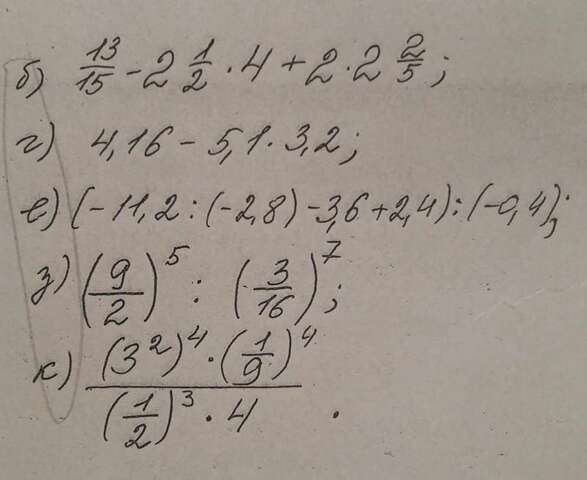 б) 13/15 - 2 1/2 · 4 + 2 · 2 2/5;
г) 4,16 - 5,1 · 3,2;
е) (-11,2 : (-2,8) - 3,6 + 2,4) : (-0,4);
з) (9/2)^5 : (3/16)^7;
к) ((3^2)^4 · (1/9)^4) / ((1/2)^3 · 4).